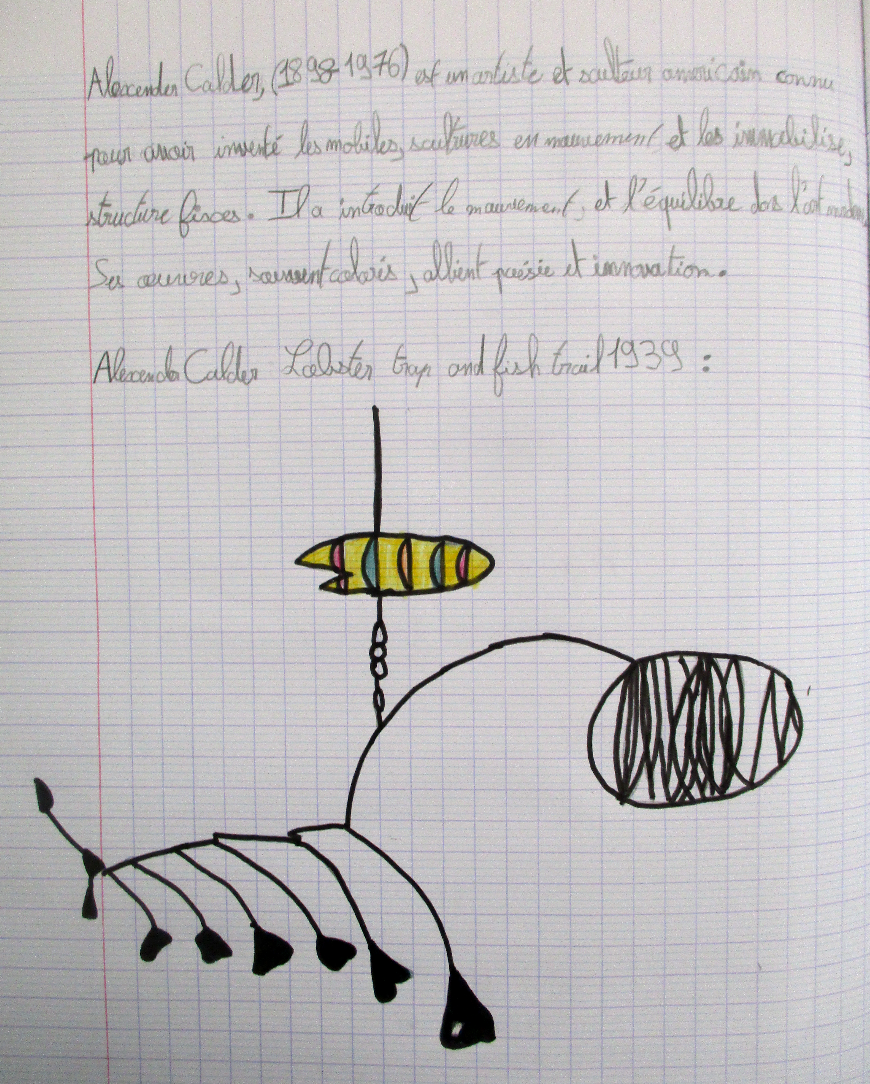 Alexender Calder, (1898-1976) est un artiste et sculteur américain connu
pour avoir inventé les mobiles, scultures en mouvement, et les immobilise,
structure fixes. Il a introduit le mouvement, et l'équilibre dans l'art modern
Ses œuvres, souvent coloris, allient poésie et innovation.
Alexender Calder Lobster trap and fish trail 1939 :